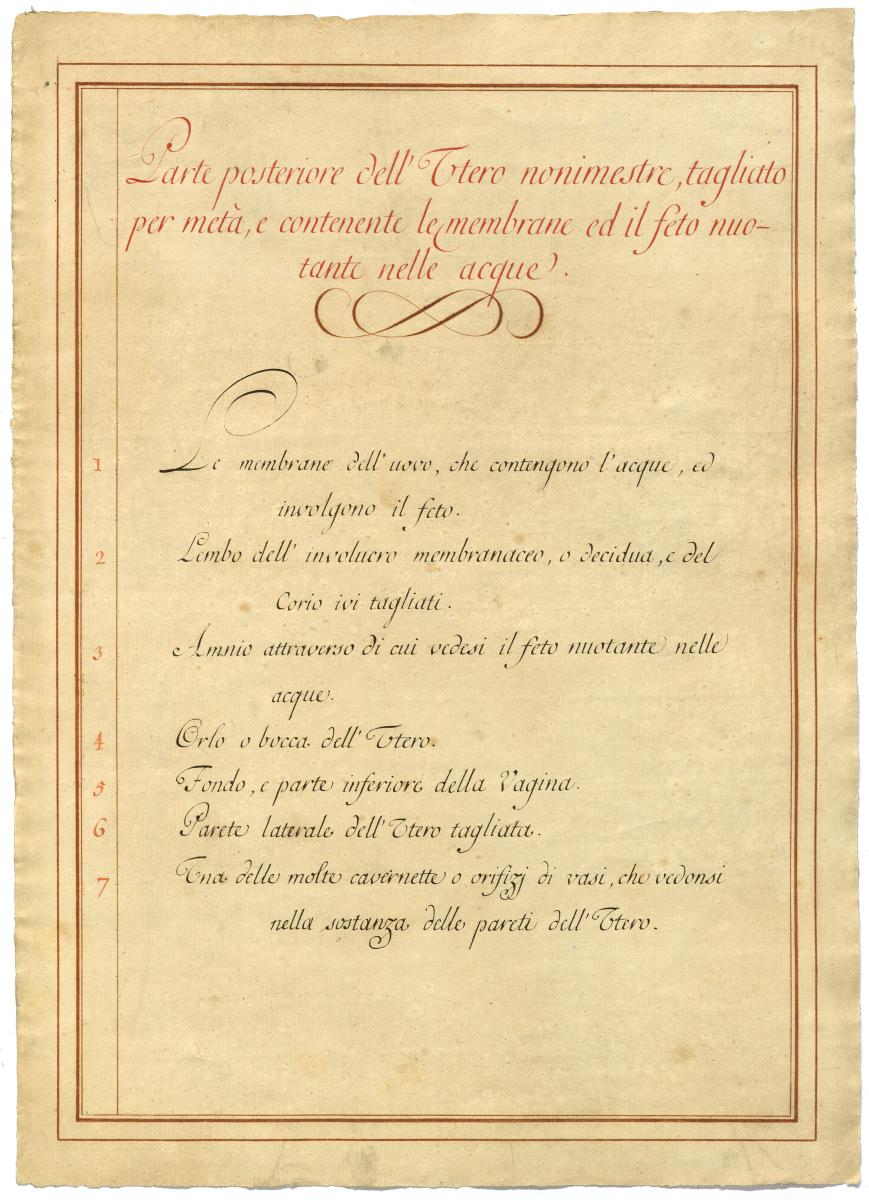 Parte posteriore dell' Utero nonimestre, tagliato
per metà, e contenente le membrane ed il feto nuo-
tante nelle acque.
1 Le membrane dell' uovo, che contengono l'acque, ed
involgono il feto.
2 Lembo dell' involucro membranaceo, o decidua, e del
Corio ivi tagliati.
3 Amnio attraverso di cui vedesi il feto nuotante nelle
acque.
4 Orlo o bocca dell' Utero.
5 Fondo, e parte inferiore della Vagina.
6 Parete laterale dell' Utero tagliata.
7 Una delle molte cavernette o orifizj di vasi, che vedonsi
nella sostanza delle pareti dell' Utero.